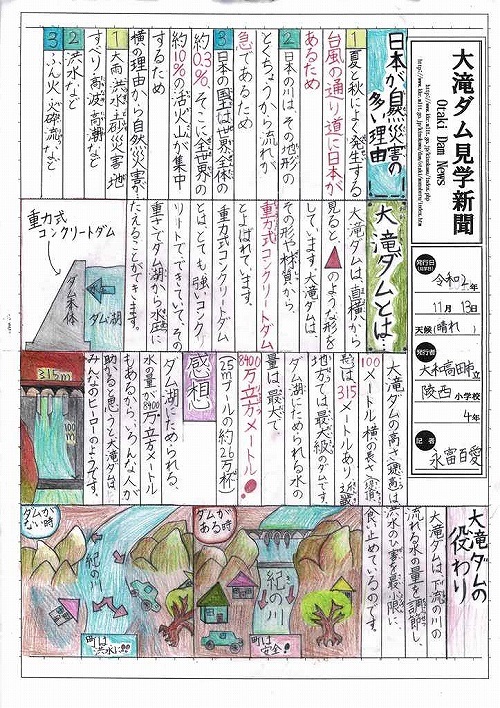 大滝ダム見学新聞
Otaki Dam News
発行日
(見学日)
令和2年
11月13日
天候(晴れ)
発行者
大和高田市立
陵西小学校
4年
記者
永富百愛
日本が自然災害の
多い理由
1
夏と秋によく発生する
台風の通り道に日本が
あるため
2
日本の川はその地形の
とくちょうから流れが
急であるため
3
日本の国土は世界全体の
約0.3%、そこに全世界の
約10%の活火山が集中
するため
横の理由から自然災害が
1
大雨、洪水、土砂災害、地
すべり、高波、高潮など
2
洪水など
3
ふん火、火砕流など
大滝ダムとは…
大滝ダムは、真横から
見ると▲のような形を
しています。大滝ダムは、
その形や材質から、
重力式コンクリートダム
とよばれています。
重力式コンクリートダム
とは、とても強いコンク
リートでできていて、その
重さでダム湖から水圧に
たえることができます。
重力式
コンクリートダム
ダム本体
ダム湖
大滝ダムの高さ(堤高)は
100メートル、横の長さ(堤頂
長)は315メートルあり、近畿
地方では最大級のダムです。
ダム湖にためられる水の
量は、最大で
8400万立方メートル!
(25mプールの約26万杯)
感想
ダム湖にためられる、
水の量が8400万立方メートル
もあるから、いろんな人が
助かると思うと大滝ダムは
みんなのヒーローのようです。
315m
100m
大滝ダムの
役わり
大滝ダムは、下流の川の
流れる水の量を調節し、
洪水のひ害を最小限に
食い止めているのです。
ダムが
ある時
紀の川
町は
安全!
ダムが
ない時
紀の川
町は
洪水に!!